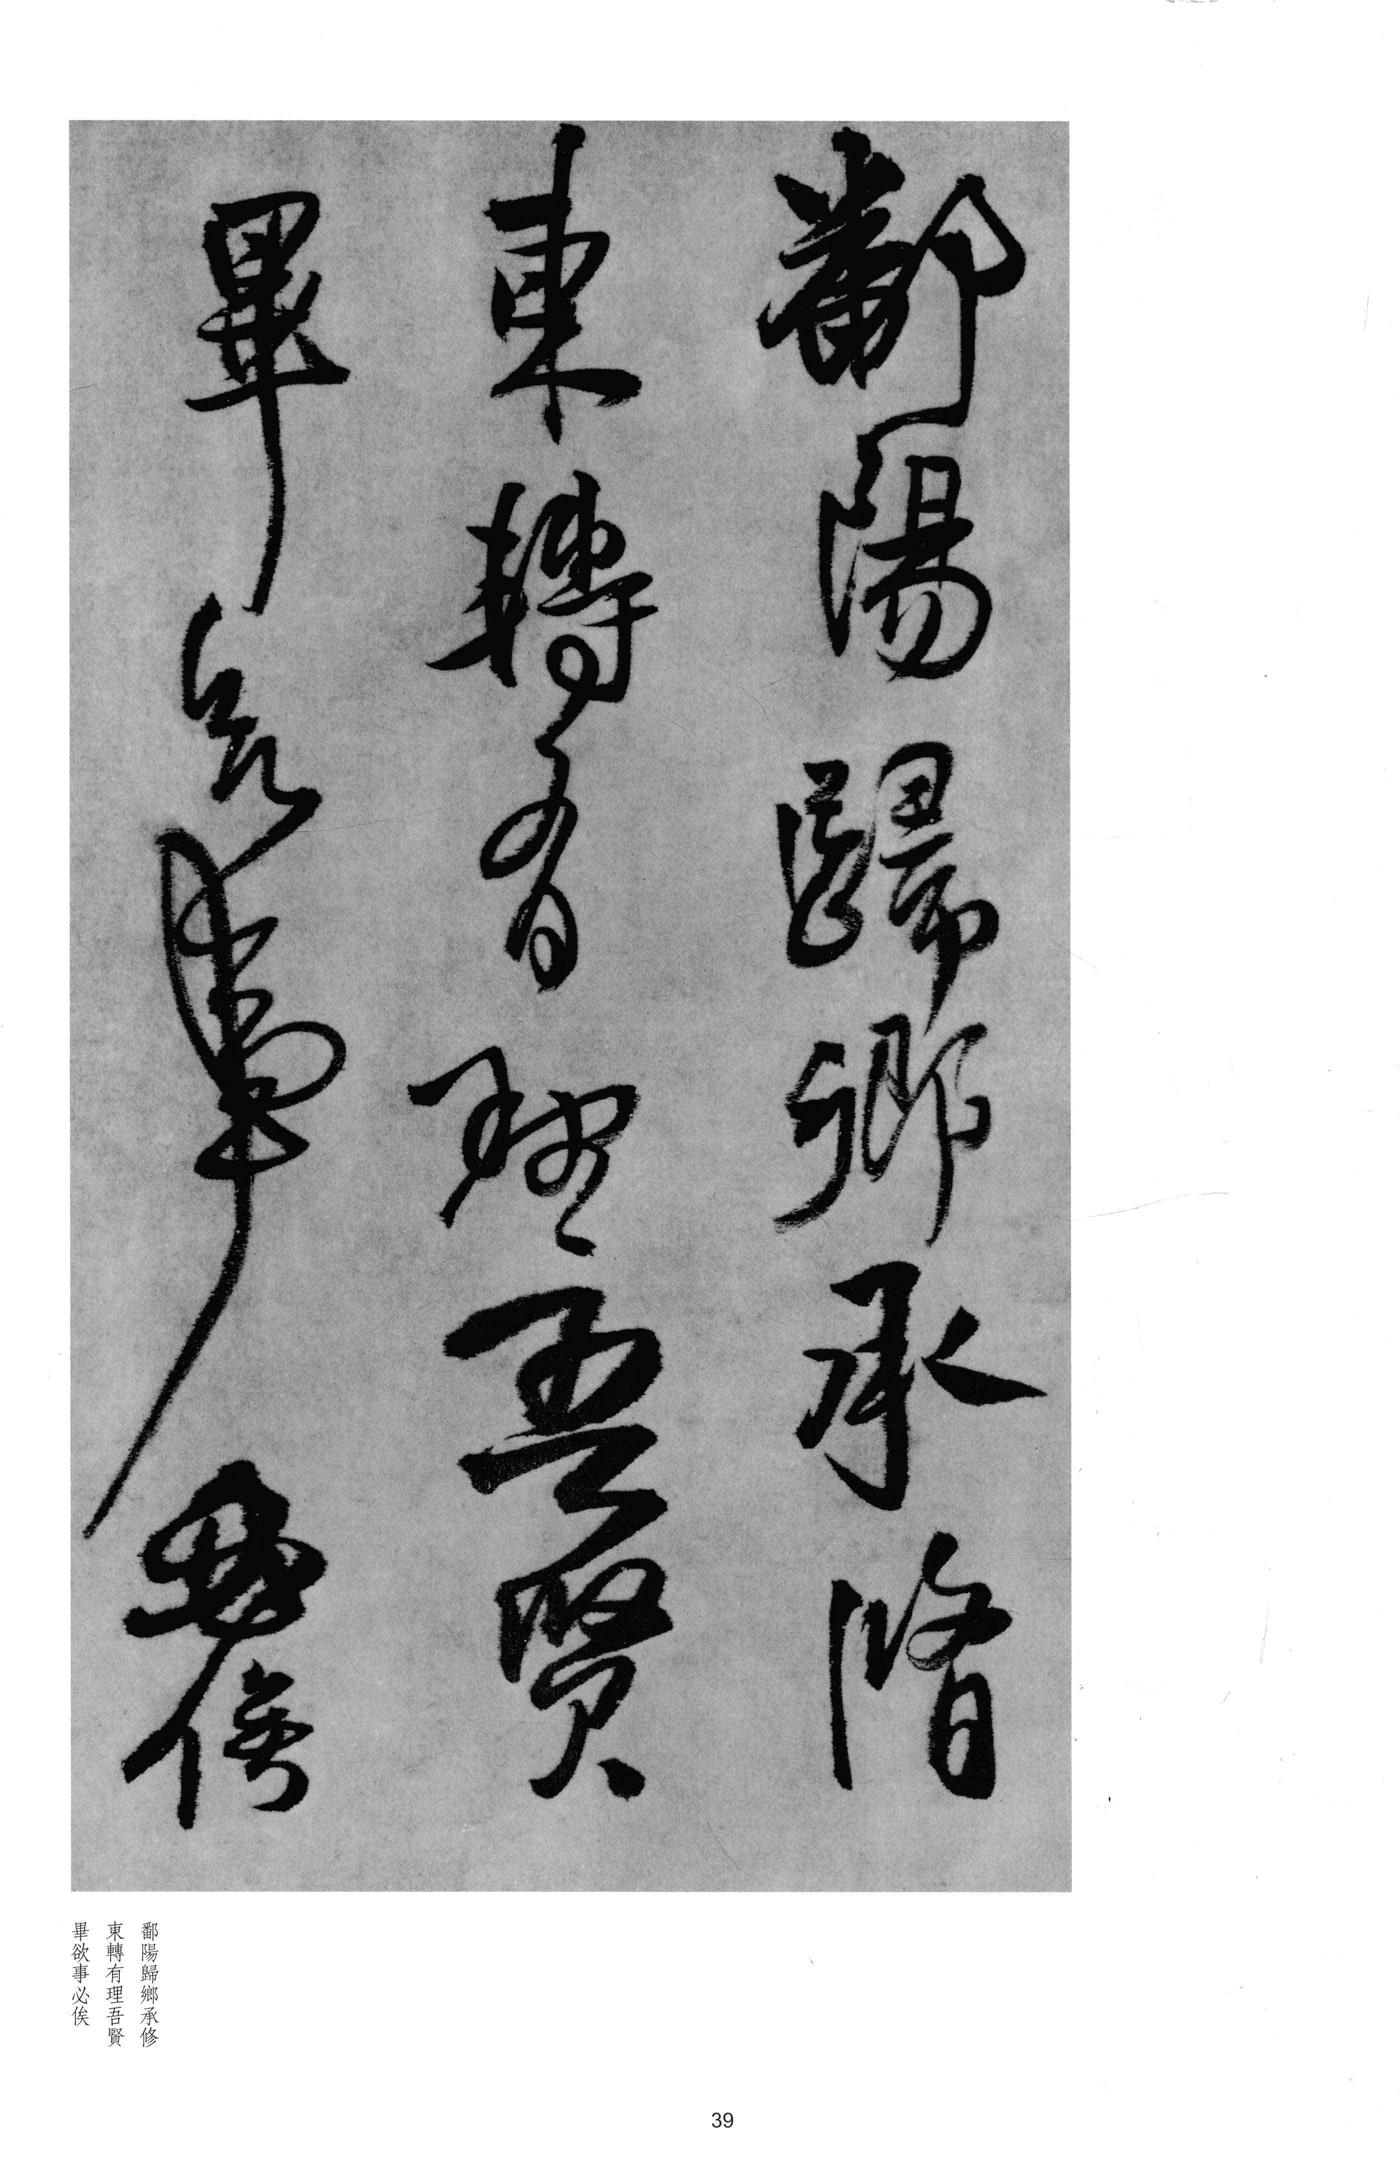 鄱陽歸鄉承脩
東轉有理吾賢
畢事俟
鄱陽歸鄉承修
東轉有理吾賢
畢欲事必俟
39